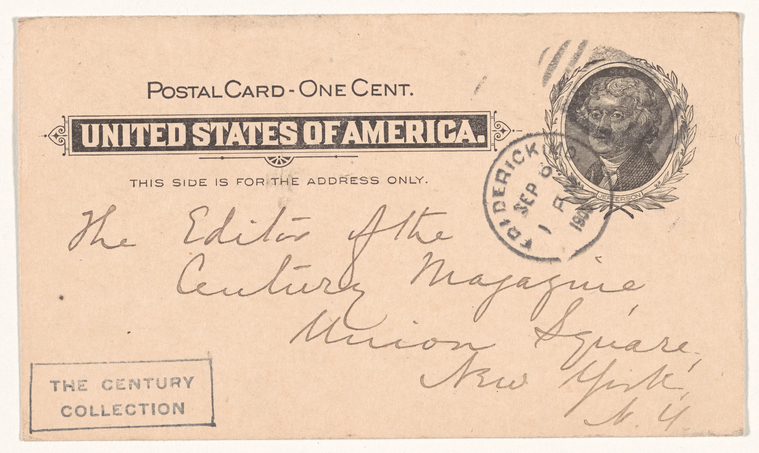 POSTAL CARD - ONE CENT.
UNITED STATES OF AMERICA.
THIS SIDE IS FOR THE ADDRESS ONLY.
JEFFERSON
FREDERICK
SEP 6
1
The Editor of the
Century Magazine,
Union Square,
New York,
N. Y.
THE CENTURY
COLLECTION